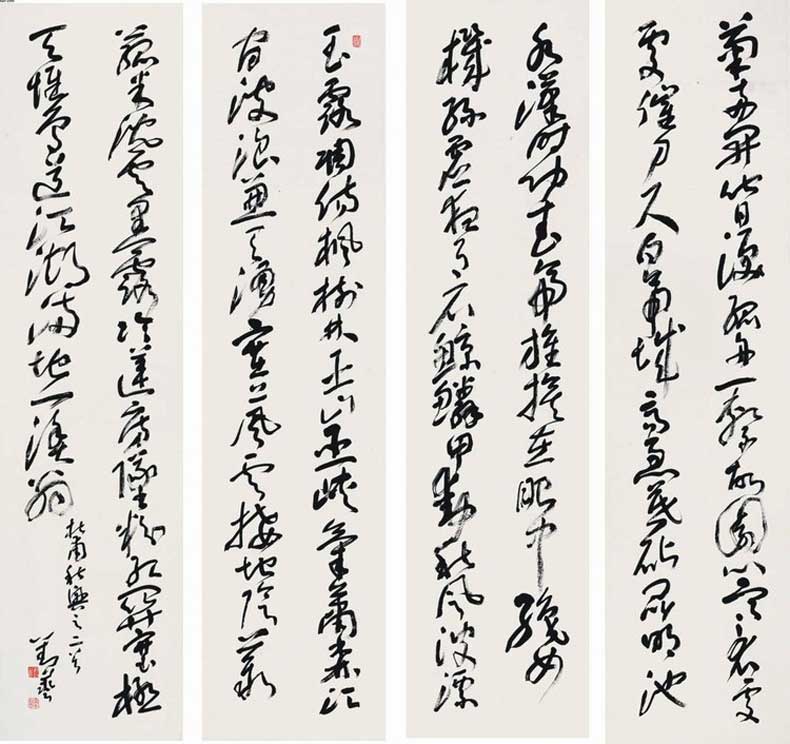 玉露凋傷楓樹林巫山巫峽氣蕭森江
間波浪兼天湧塞上風雲接地陰叢
菊兩開他日淚孤舟一繫故園心寒衣處
處催刀尺白帝城高急暮砧昆明池
水漢時功武帝旌旗在眼中織女
機絲虛夜月石鯨鱗甲動秋風波漂
菰米沉雲黑露冷蓮房墜粉紅關塞極
天惟鳥道江湖滿地一漁翁
杜甫秋興之二首
劉藝